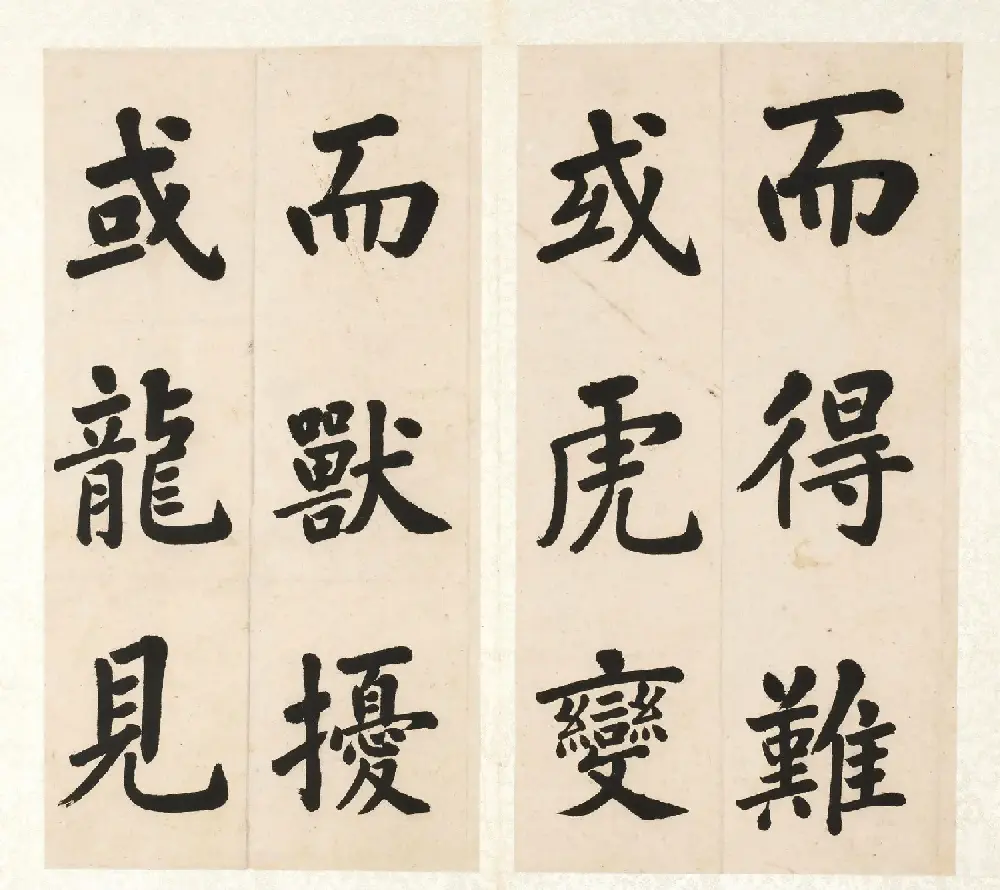 而得難
或虎變
而獸擾
或龍見